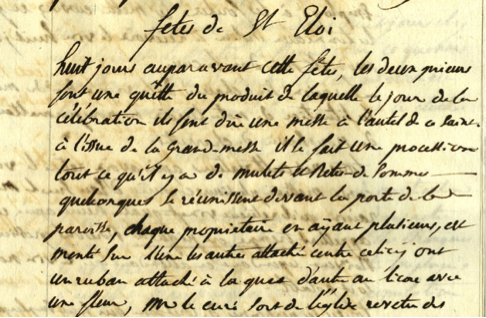 fetes de St Eloi
huit jours auparavant cette fête, les deux prieurs
font une quête du produit de laquelle le jour de la
célébration ils font dire une messe à l'autel de ce saint
à l'issue de la Grand-messe il se fait une procession
tout ce qu'il y a de mulets et Betes de Somme
quelconques se réunissent devant la porte de la
paroisse, chaque propriétaire en ayant plusieurs, est
monté sur l'une les autres attachés celle ci ont
un ruban attaché à la queue d'autre au licou avec
une fleur, Mr le curé sort de l'église revetu des